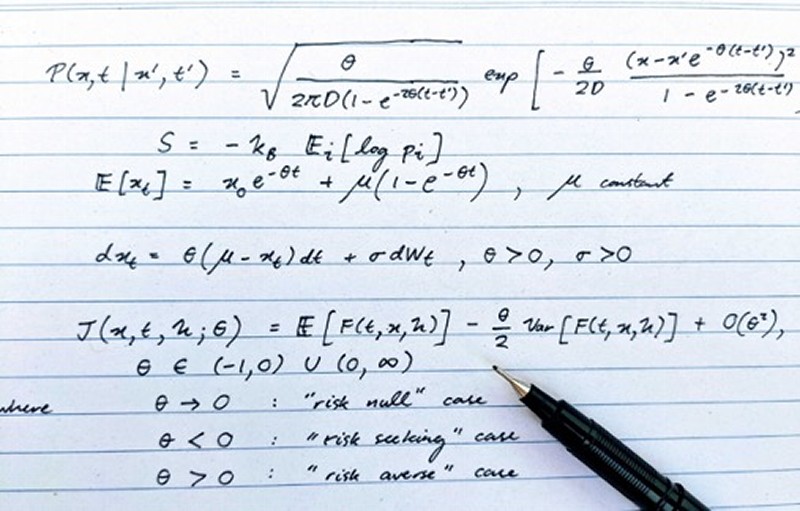 P(x,t | x',t') = √(θ / 2πD(1-e^{-2θ(t-t')})) exp [ - θ/2D (x-x'e^{-θ(t-t')})² / 1-e^{-2θ(t-t')}
S = -k_B 𝔼_i [log p_i]
𝔼[x_t] = x_0 e^{-θt} + μ(1-e^{-θt}) , μ constant
dx_t = θ(μ-x_t)dt + σdW_t , θ>0, σ>0
J(x,t,h;θ) = 𝔼[F(t,x,h)] - θ/2 Var[F(t,x,h)] + O(θ²),
θ ∈ (-1,0) ∪ (0,∞)
where θ → 0 : "risk null" case
θ < 0 : "risk seeking" case
θ > 0 : "risk averse" case